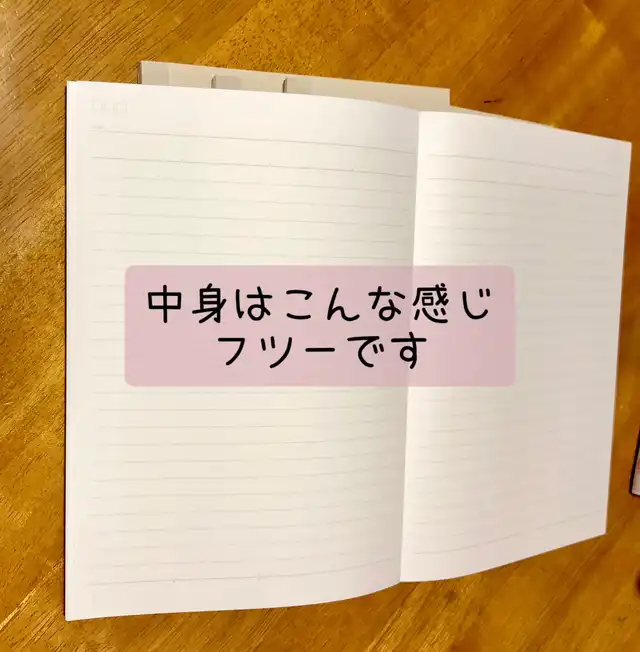 中身はこんな感じ
フツーです